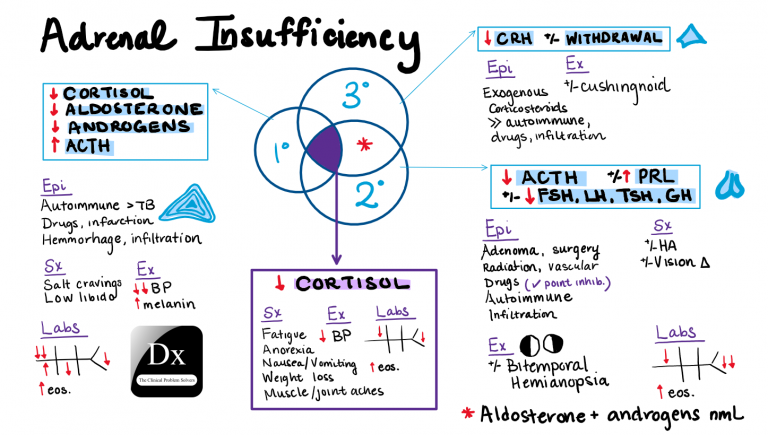 Adrenal Insufficiency
↓ CRH +/- WITHDRAWAL
Epi
Exogenous
Corticosteroids
>> autoimmune,
drugs, infiltration
Ex
+/- cushingnoid
↓ CORTISOL
↓ ALDOSTERONE
↓ ANDROGENS
↑ ACTH
3°
1°
*
2°
Epi
Autoimmune > TB
Drugs, infarction
Hemorrhage, infiltration
Sx
Salt cravings
Low libido
Ex
↓↓ BP
↑ melanin
Labs
↑ eos.
Dx
The Clinical Problem Solvers
↓ CORTISOL
Sx
Fatigue
Anorexia
Nausea/Vomiting
Weight loss
Muscle/joint aches
Ex
↓ BP
Labs
↑ eos.
↓ ACTH +/- ↑ PRL
+/- ↓ FSH, LH, TSH, GH
Epi
Adenoma, surgery
Radiation, vascular
Drugs (✓ point inhib.)
Autoimmune
Infiltration
Sx
+/- HA
+/- Vision Δ
Ex
+/- Bitemporal
Hemianopsia
Labs
↑ eos.
* Aldosterone + androgens nml